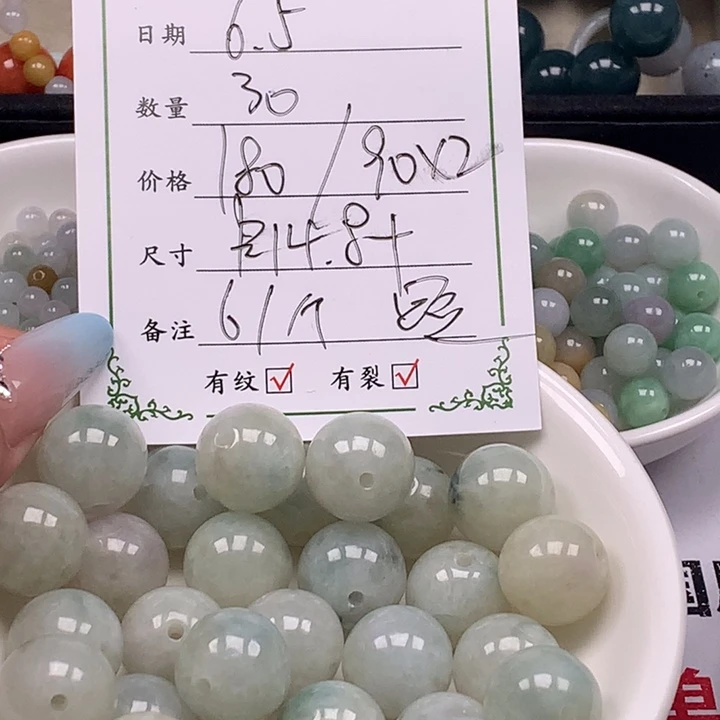 日期 6.5
数量 30
价格 180 / 90X2
尺寸 14.8+
备注 61个
有纹☑ 有裂☑